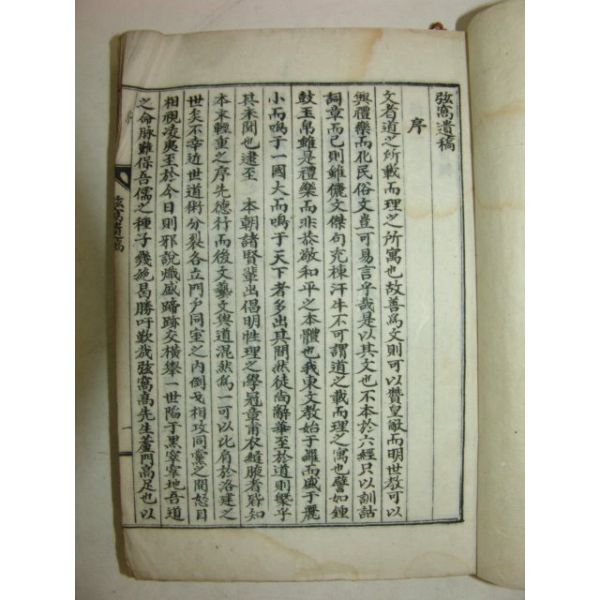 弦窩遺稿
序
文者道之所載而理之所寓也故善爲文則可以贊皇猷而明世敎可以
興禮樂而化民俗文豈可易言乎哉是以其文也不本於六經只以訓詁
詞章而已則雖儷文傑句充棟汗牛不可謂道之載而理之寓也譬如鍾
鼓玉帛雖是禮樂而非恭敬和平之本體也我東文敎始于羅而盛于麗
小而鳴于一國大而鳴于天下者多出其間然徒尙辭華至於道則槩乎
其未聞也逮至 本朝諸賢輩出倡明性理之學冠章甫衣縫腋者皆知
本末輕重之序先德行而後文藝文與道混然爲一可以比肩於洛建之
世矣不幸近世道術分裂各立門戶同室之內倒戈相攻同黨之間怒目
相視凌夷至於今日則邪說熾盛蹄跡交橫擧一世陷于黑窣窣地吾道
之命脉難保吾儒之種子幾施曷勝吁歎哉弦窩高先生蘆門高足也以
弦窩遺稿
序